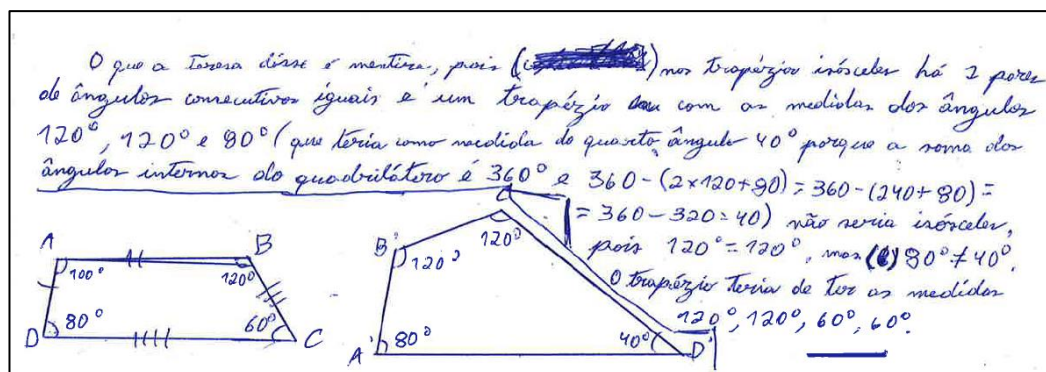 O que a Teresa disse é mentira, pois ( ) nos trapézios isósceles há 2 pares
de ângulos consecutivos iguais e um trapézio com as medidas dos ângulos
120°, 120° e 80° (que teria como medida do quarto ângulo 40° porque a soma dos
ângulos internos do quadrilátero é 360° e 360-(2×120+80)=360-(240+80)=
=360-320=40) não seria isósceles,
pois 120°=120°, mas 80°≠40°.
O trapézio teria de ter as medidas
120°, 120°, 60°, 60°.
A B
100° 120°
80° 60°
D C
C'
B' 120°
120°
80° 40°
A' D'